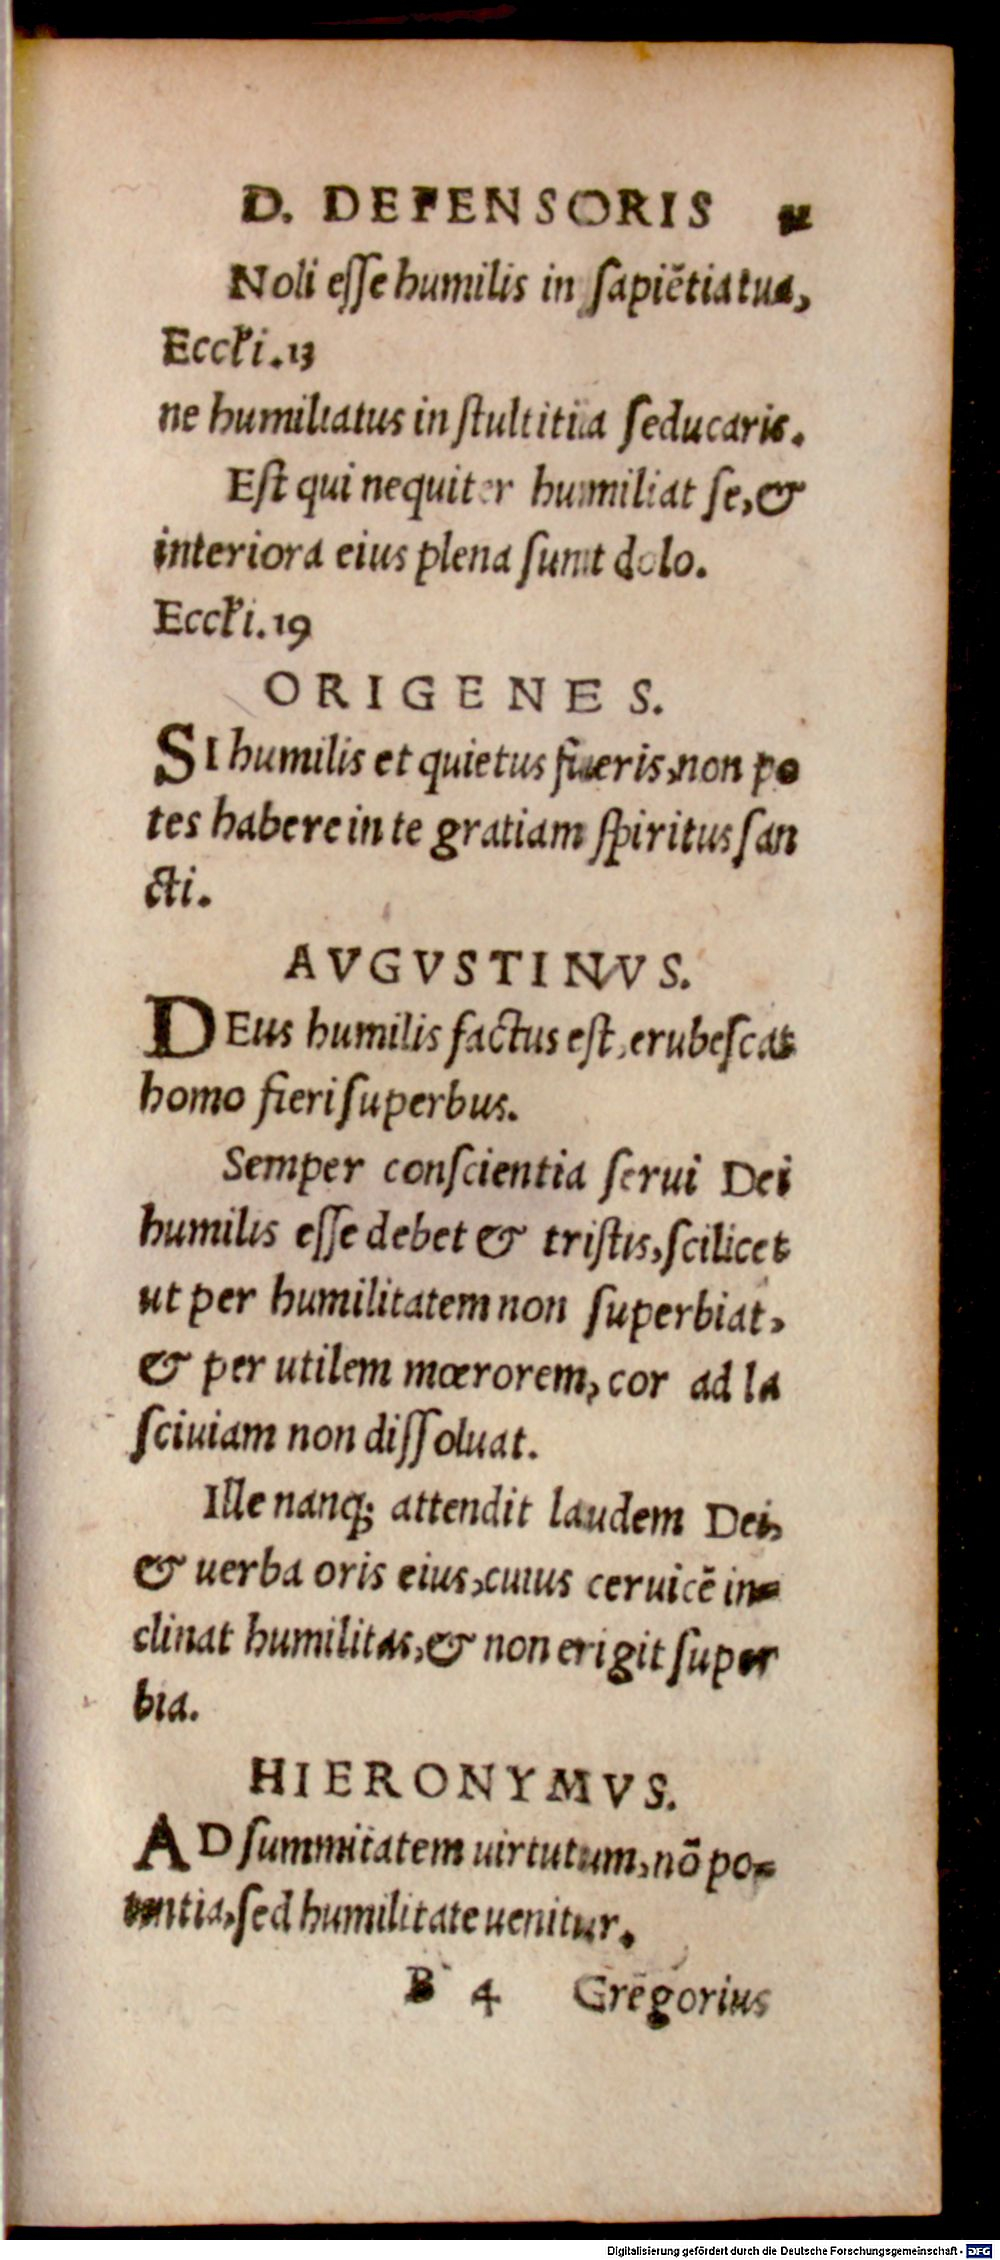 D. DEFENSORIS
Noli esse humilis in sapiẽtia tua,
Eccɫi.13
ne humiliatus in stultitia seducaris.
Est qui nequiter humiliat se, &
interiora eius plena sunt dolo.
Eccɫi.19
ORIGENES.
SI humilis et quietus fueris, non po
tes habere in te gratiam spiritus san
cti.
AVGVSTINVS.
DEus humilis factus est, erubescat
homo fieri superbus.
Semper conscientia serui Dei
humilis esse debet & tristis, scilicet
ut per humilitatem non superbiat,
& per utilem mœrorem, cor ad la
sciuiam non dissoluat.
Ille nanq; attendit laudem Dei,
& uerba oris eius, cuius ceruicẽ in-
clinat humilitas, & non erigit super
bia.
HIERONYMVS.
AD summitatem uirtutum, nõ po-
tentia, sed humilitate uenitur.
B 4 Gregorius
Digitalisierung gefördert durch die Deutsche Forschungsgemeinschaft - DFG